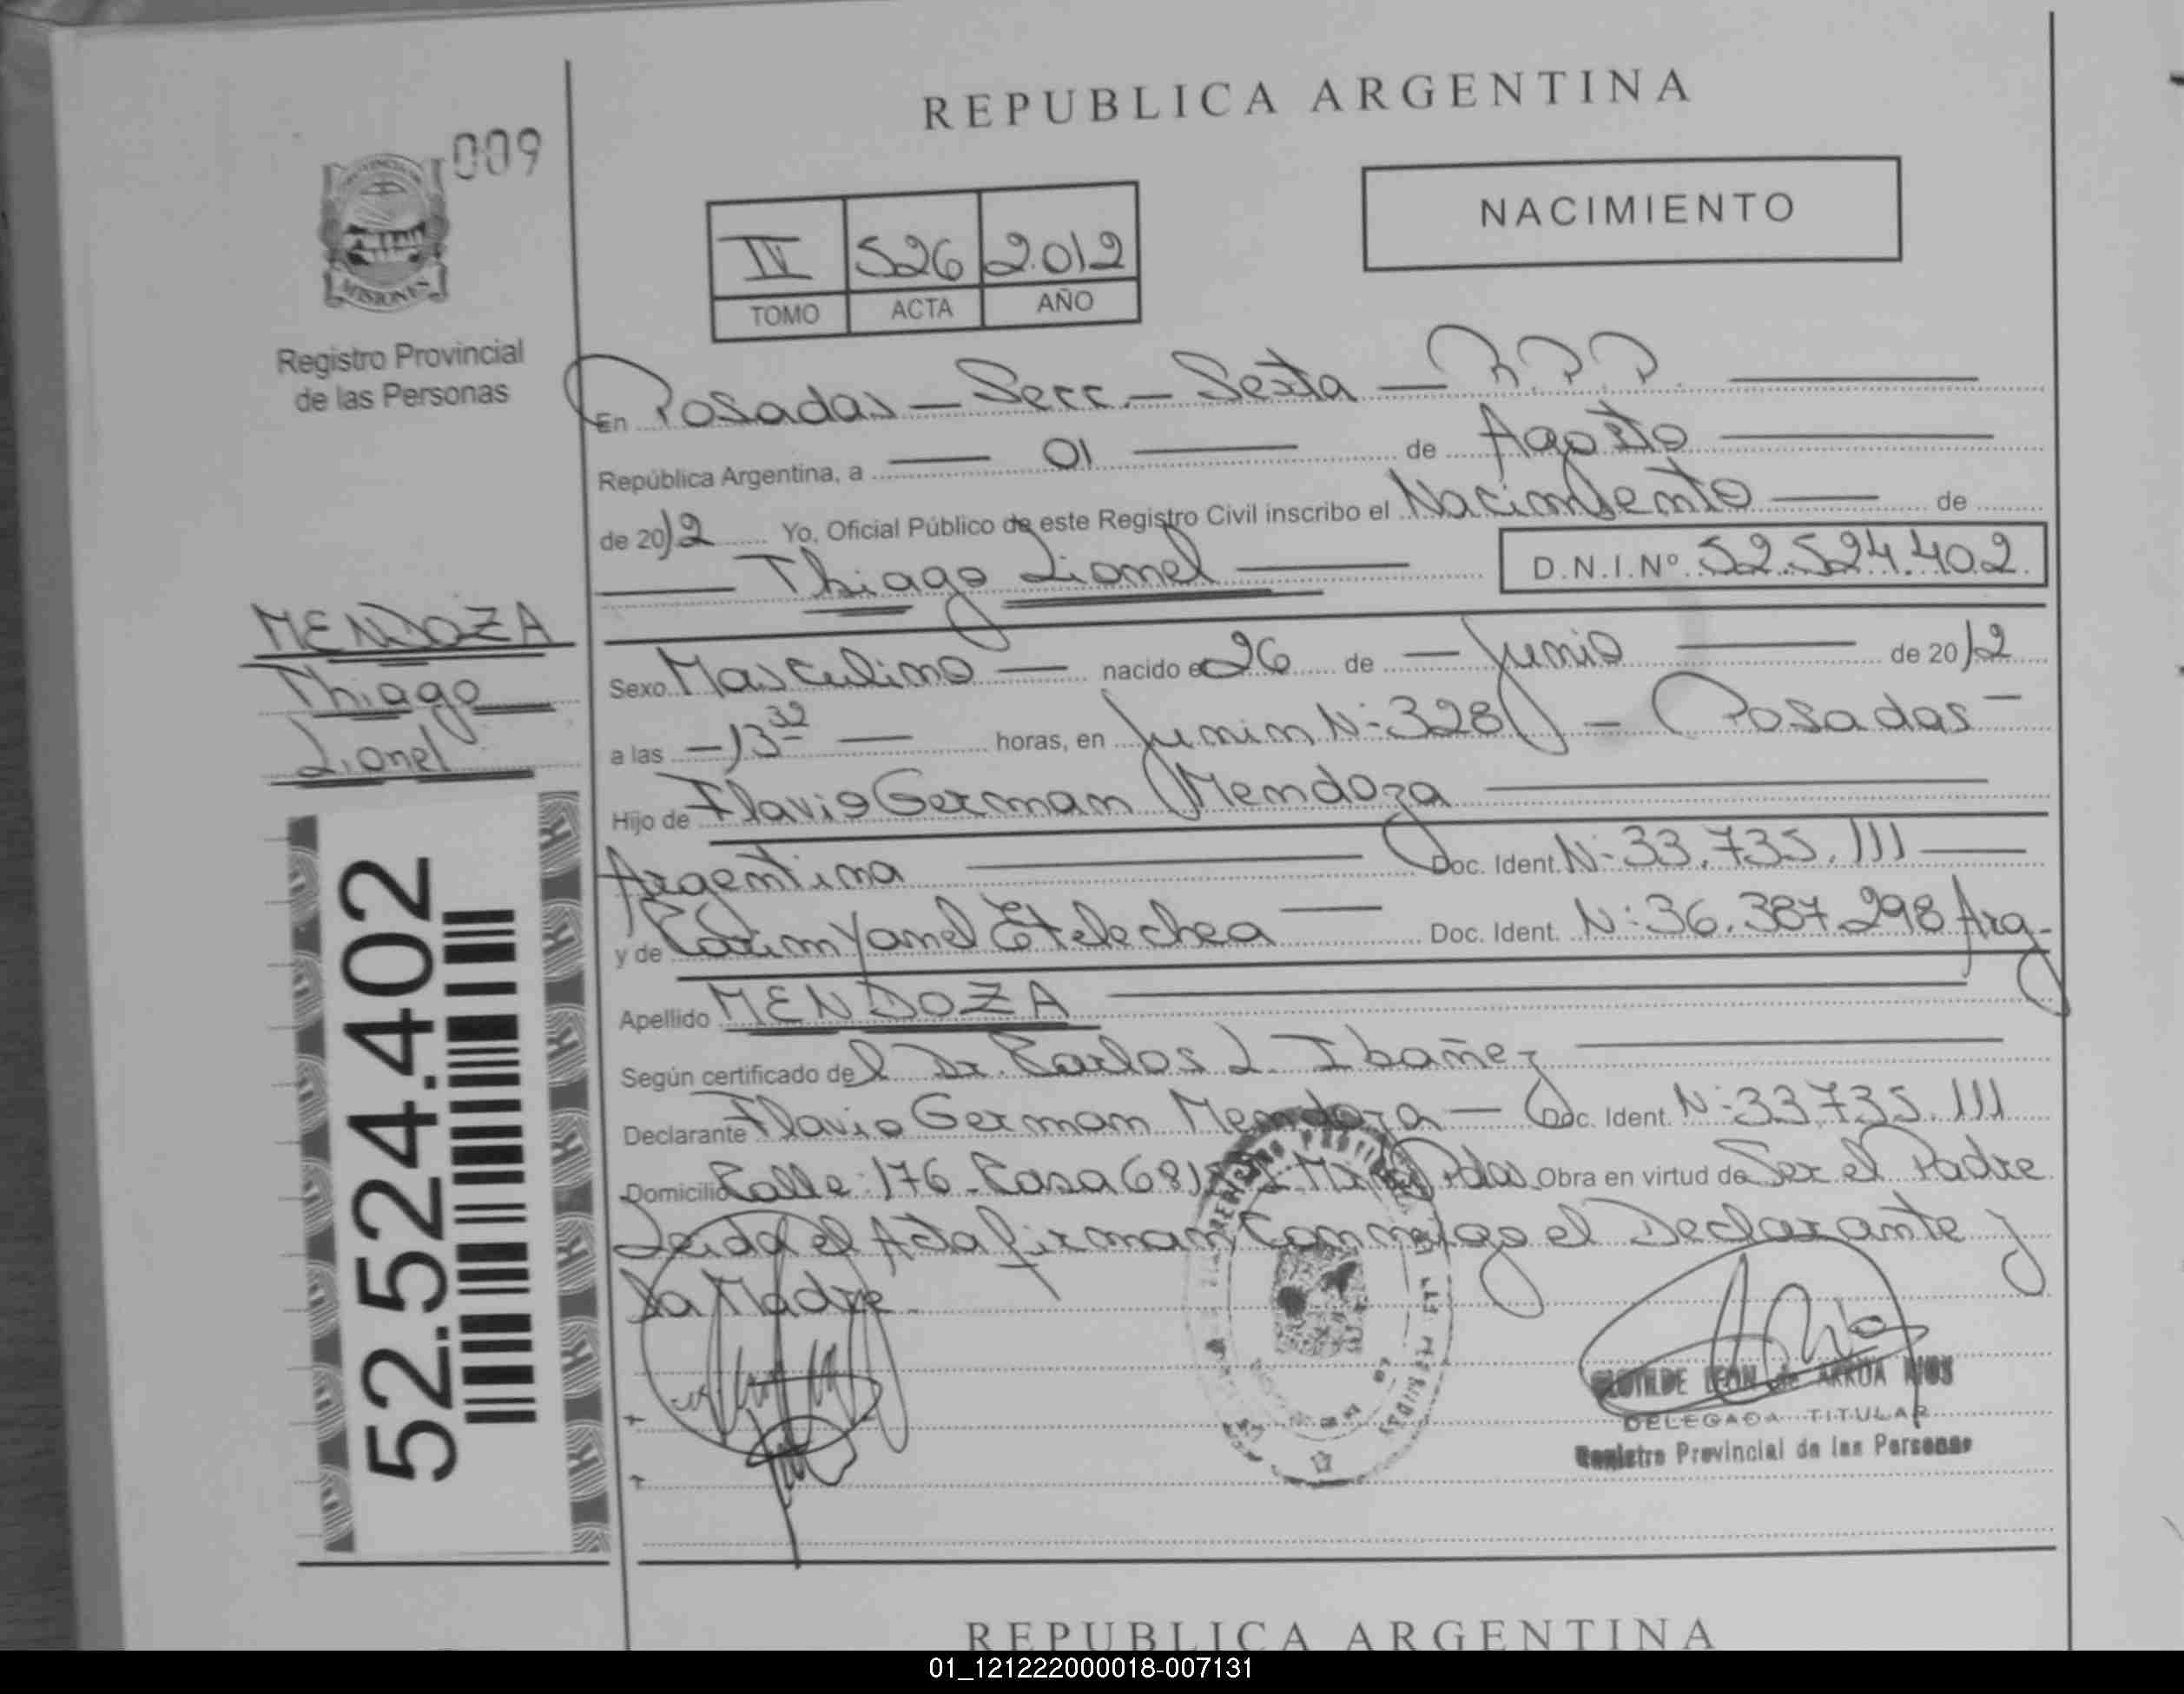 REPUBLICA ARGENTINA
009
MISIONES
Registro Provincial
de las Personas
NACIMIENTO
IV 526 2.012
TOMO ACTA AÑO
En Posadas - Secc. - Sexta - R.P.P.
República Argentina, a 01 de Agosto
de 2012 Yo, Oficial Público de este Registro Civil inscribo el Nacimiento de
Thiago Lionel D.N.I.Nº 52.524.402
MENDOZA
Thiago
Lionel
Sexo Masculino nacido el 26 de Junio de 2012
a las 13 32 horas, en Junin N:328 - Posadas
Hijo de Flavio German Mendoza
Argentina Doc. Ident. N:33.735.111
y de Karim Yamel Etelechea Doc. Ident. N:36.387.298 Arg.
Apellido MENDOZA
Según certificado del Dr. Carlos L. Ibañez
Declarante Flavio German Mendoza - Doc. Ident. N:33735.111
Domicilio Calle:176 - Casa 681 Pdas Obra en virtud de Ser el Padre
Leida el Acta firman Conmigo el Declarante y
la Madre.
52.524.402
CLOTILDE LEON de ARRUA RIOS
DELEGADA TITULAR
Registro Provincial de las Personas
REPUBLICA ARGENTINA
01_121222000018-007131